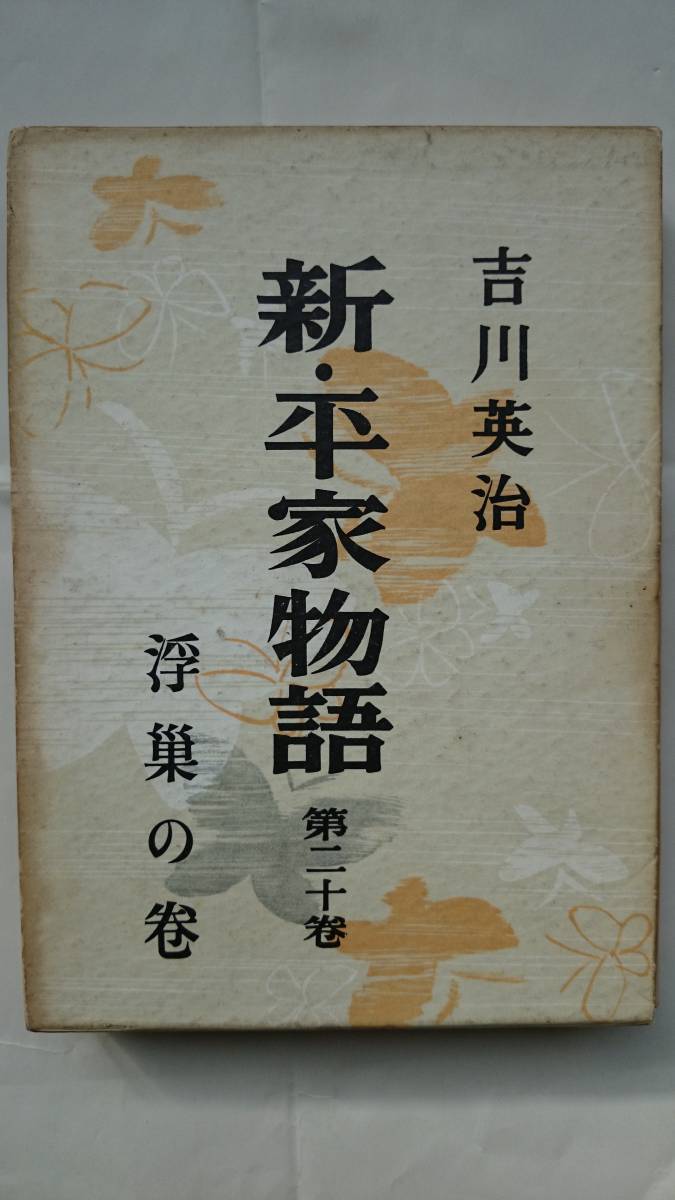 吉川英治
新・平家物語
第二十卷
浮巣の卷